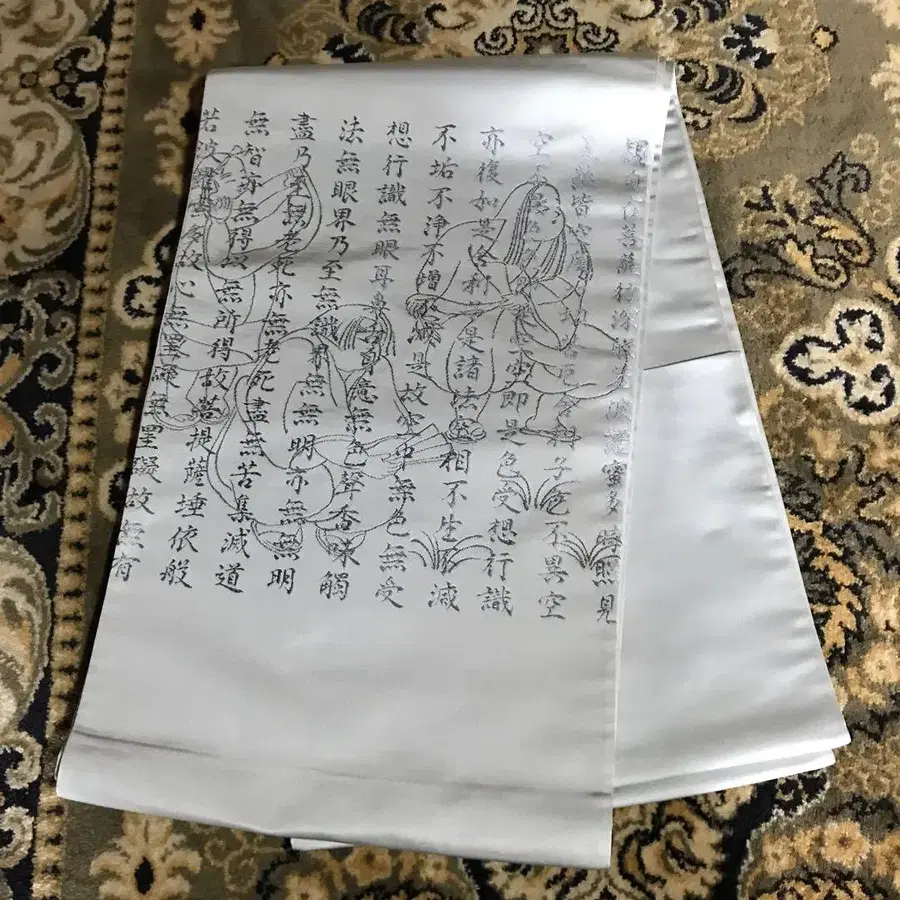 観自在菩薩行深般若波羅蜜多時照見
蘊皆空度一切苦厄舍利子色不異空
空不異色色即是空空即是色受想行識
亦復如是舍利子是諸法空相不生不滅
不垢不淨不増不減是故空中無色無受
想行識無眼耳鼻舌身意無色聲香味觸
法無眼界乃至無識界無無明亦無無明
盡乃至無老死亦無老死盡無苦集滅道
無智亦無得以無所得故菩提薩埵依般
若波羅蜜多故心無罣礙無罣礙故無有